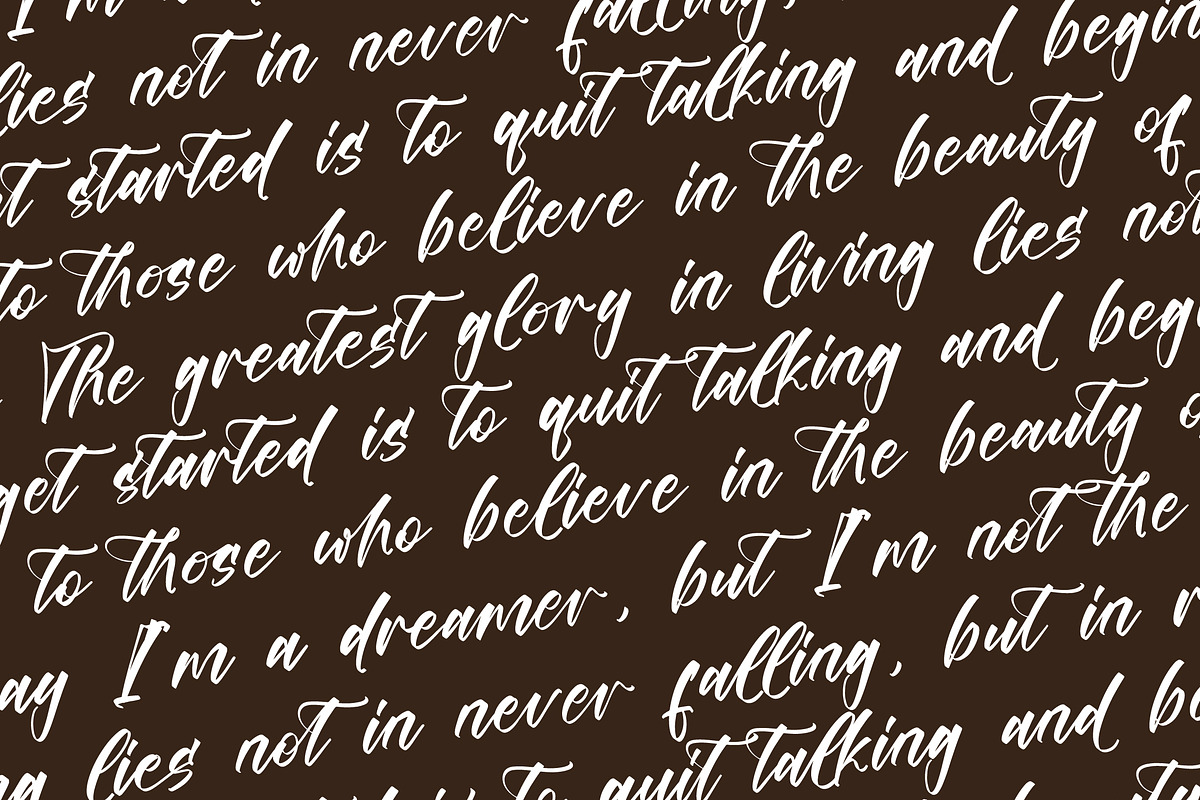 I'm
lies not in never falling,
et started is to quit talking and begin
to those who believe in the beauty of
The greatest glory in living lies not
get started is to quit talking and beg
to those who believe in the beauty o
ay I'm a dreamer, but I'm not the
ng lies not in never falling, but in
is to quit talking and be